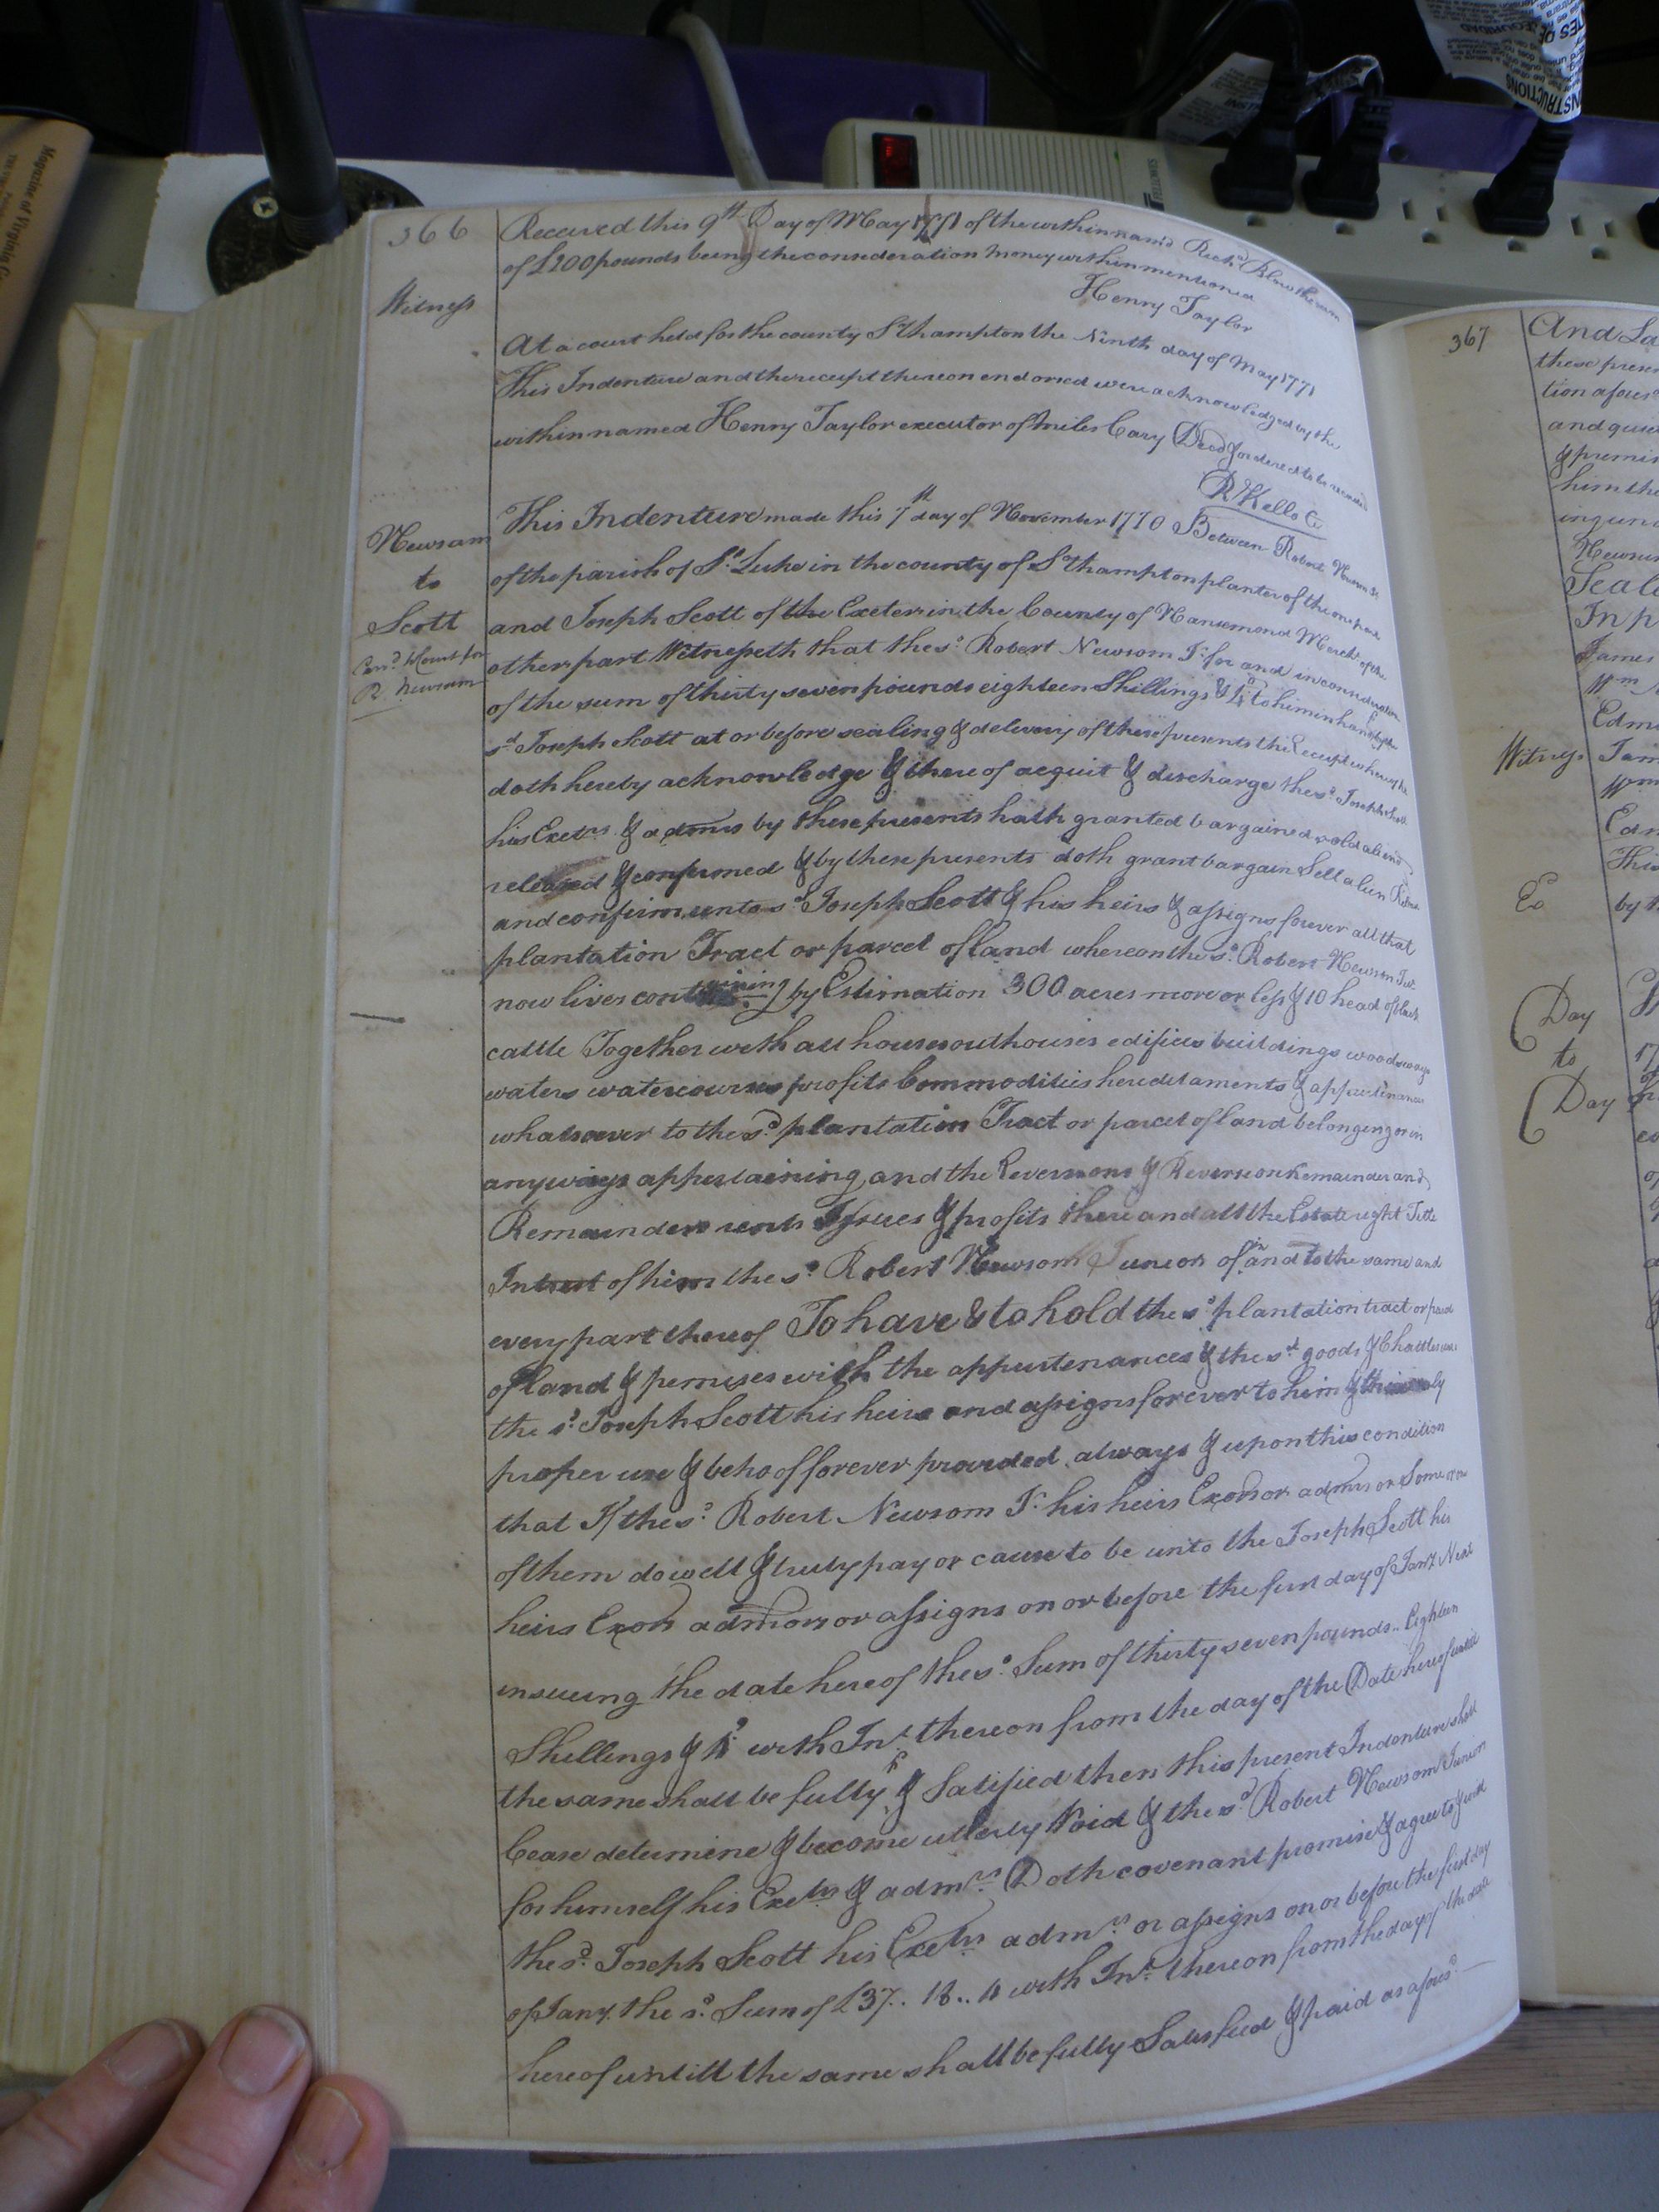 366
Received this 9th Day of May 1771 of the within nam'd Richd Blow the sum
of £200 pounds being the consideration money within mentioned
Witness
Henry Taylor
At a court held for the county So.thampton the Ninth day of May 1771
This Indenture and the receipt thereon endorsed were acknowledged by the
within named Henry Taylor executor of Miles Cary Decd & ordered to be recorded
R Kello
Newsam
to
Scott
R. Newsam
This Indenture made this 7th day of November 1770 Between Robert Newsom Jr.
of the parish of St. Luke in the county of So.thampton planter of the one part
and Joseph Scott of the Exeter in the County of Nansemond Mercht. of the
other part Witnesseth that the sd. Robert Newsom Jr. for and in consideration
of the sum of thirty seven pounds eighteen Shillings & 4d to him in hand by the
sd Joseph Scott at or before sealing & delivery of these presents the Receipt whereof he
doth hereby acknowledge & there of acquit & discharge the sd. Joseph Scott
his Exetrs. & admrs by these presents hath granted bargained sold aliend
released & confirmed & by these presents doth grant bargain Sell alien Release
and confirm unto sd. Joseph Scott & his heirs & assigns forever all that
plantation Tract or parcel of land whereon the sd. Robert Newsom Jur.
now lives containing by Estimation 300 acres more or less & 10 head of black
cattle Together with all houses outhouses edifices buildings woods ways
waters watercourses profits Commodities hereditaments & appurtenances
whatsoever to the sd. plantation Tract or parcel of land belonging or in
anyways appertaining, and the Reversions & Reversion Remainder and
Remainders rents Issues & profits there and all the Estate right Title
Intrest of him the sd. Robert Newsom Junior of in and to the same and
every part thereof To have & to hold the sd. plantation tract or parcel
of land & premises with the appurtenances & the sd. goods & Chattles unto
the sd. Joseph Scott his heirs and assigns forever to him & only
proper use & behoof forever provided always & upon this condition
that If the sd. Robert Newsom Jr. his heirs Exors or admrs or Some or one
of them do well & truly pay or cause to be unto the Joseph Scott his
heirs Exors admors or assigns on or before the first day of Jany. Next
insueing the date hereof the sd. Sum of thirty seven pounds.. Eighteen
Shillings & 4d with Int. thereon from the day of the Date hereof untill
the same shall be fully p & Satified then this present Indenture shall
Cease determine & become utterly Void & the sd. Robert Newsom Junior
for himself his Exetrs & admrs. Doth covenant promise & agree to & with
the sd. Joseph Scott his Exetrs admrs. or assigns on or before the first day
of Jany. the sd. Sum of £37.. 18.. 4 with Int. thereon from the day of the date
hereof untill the same shall be fully Satisfied & paid as aforesd.
367
And La
these presen
tion afores
and quie
& premis
him the
ing und
Newsu
Seale
In p
James
Wm
Edm
Witness Jam
Wm
Edn
This
by t
Day
to
Day
17
Magazine of Virginia
INSTRUCTIONS